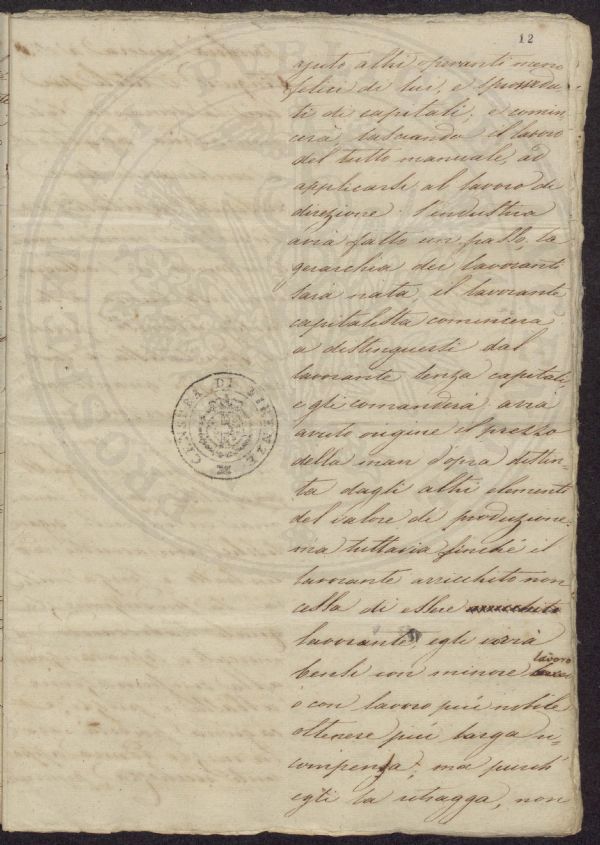 12
ajuto altri operanti meno
felici di lui, e sprovedu
ti di capitali, e comin
cerà lasciando il lavoro
del tutto manuale, ad
applicarsi al lavoro di
direzione: l'industria
avrà fatto un passo, la
gerarchia dei lavoranti
sarà nata, il lavorante
capitalista comincerà
a distinguersi dal
lavorante senza capitali,
e gli comanderà: avrà
avuto origine il prezzo
della man d'opra distin-
ta dagli altri elementi
del valore di produzione.
ma tuttavia finché il
lavorante arricchito non
cessa di essere arricchito
lavorante, egli
bensì con minore lavoro
ò con lavoro più nobile
ottenere più larga ri-
compensa; ma purch'
egli la ritragga, non
CENSURA DI FIRENZE